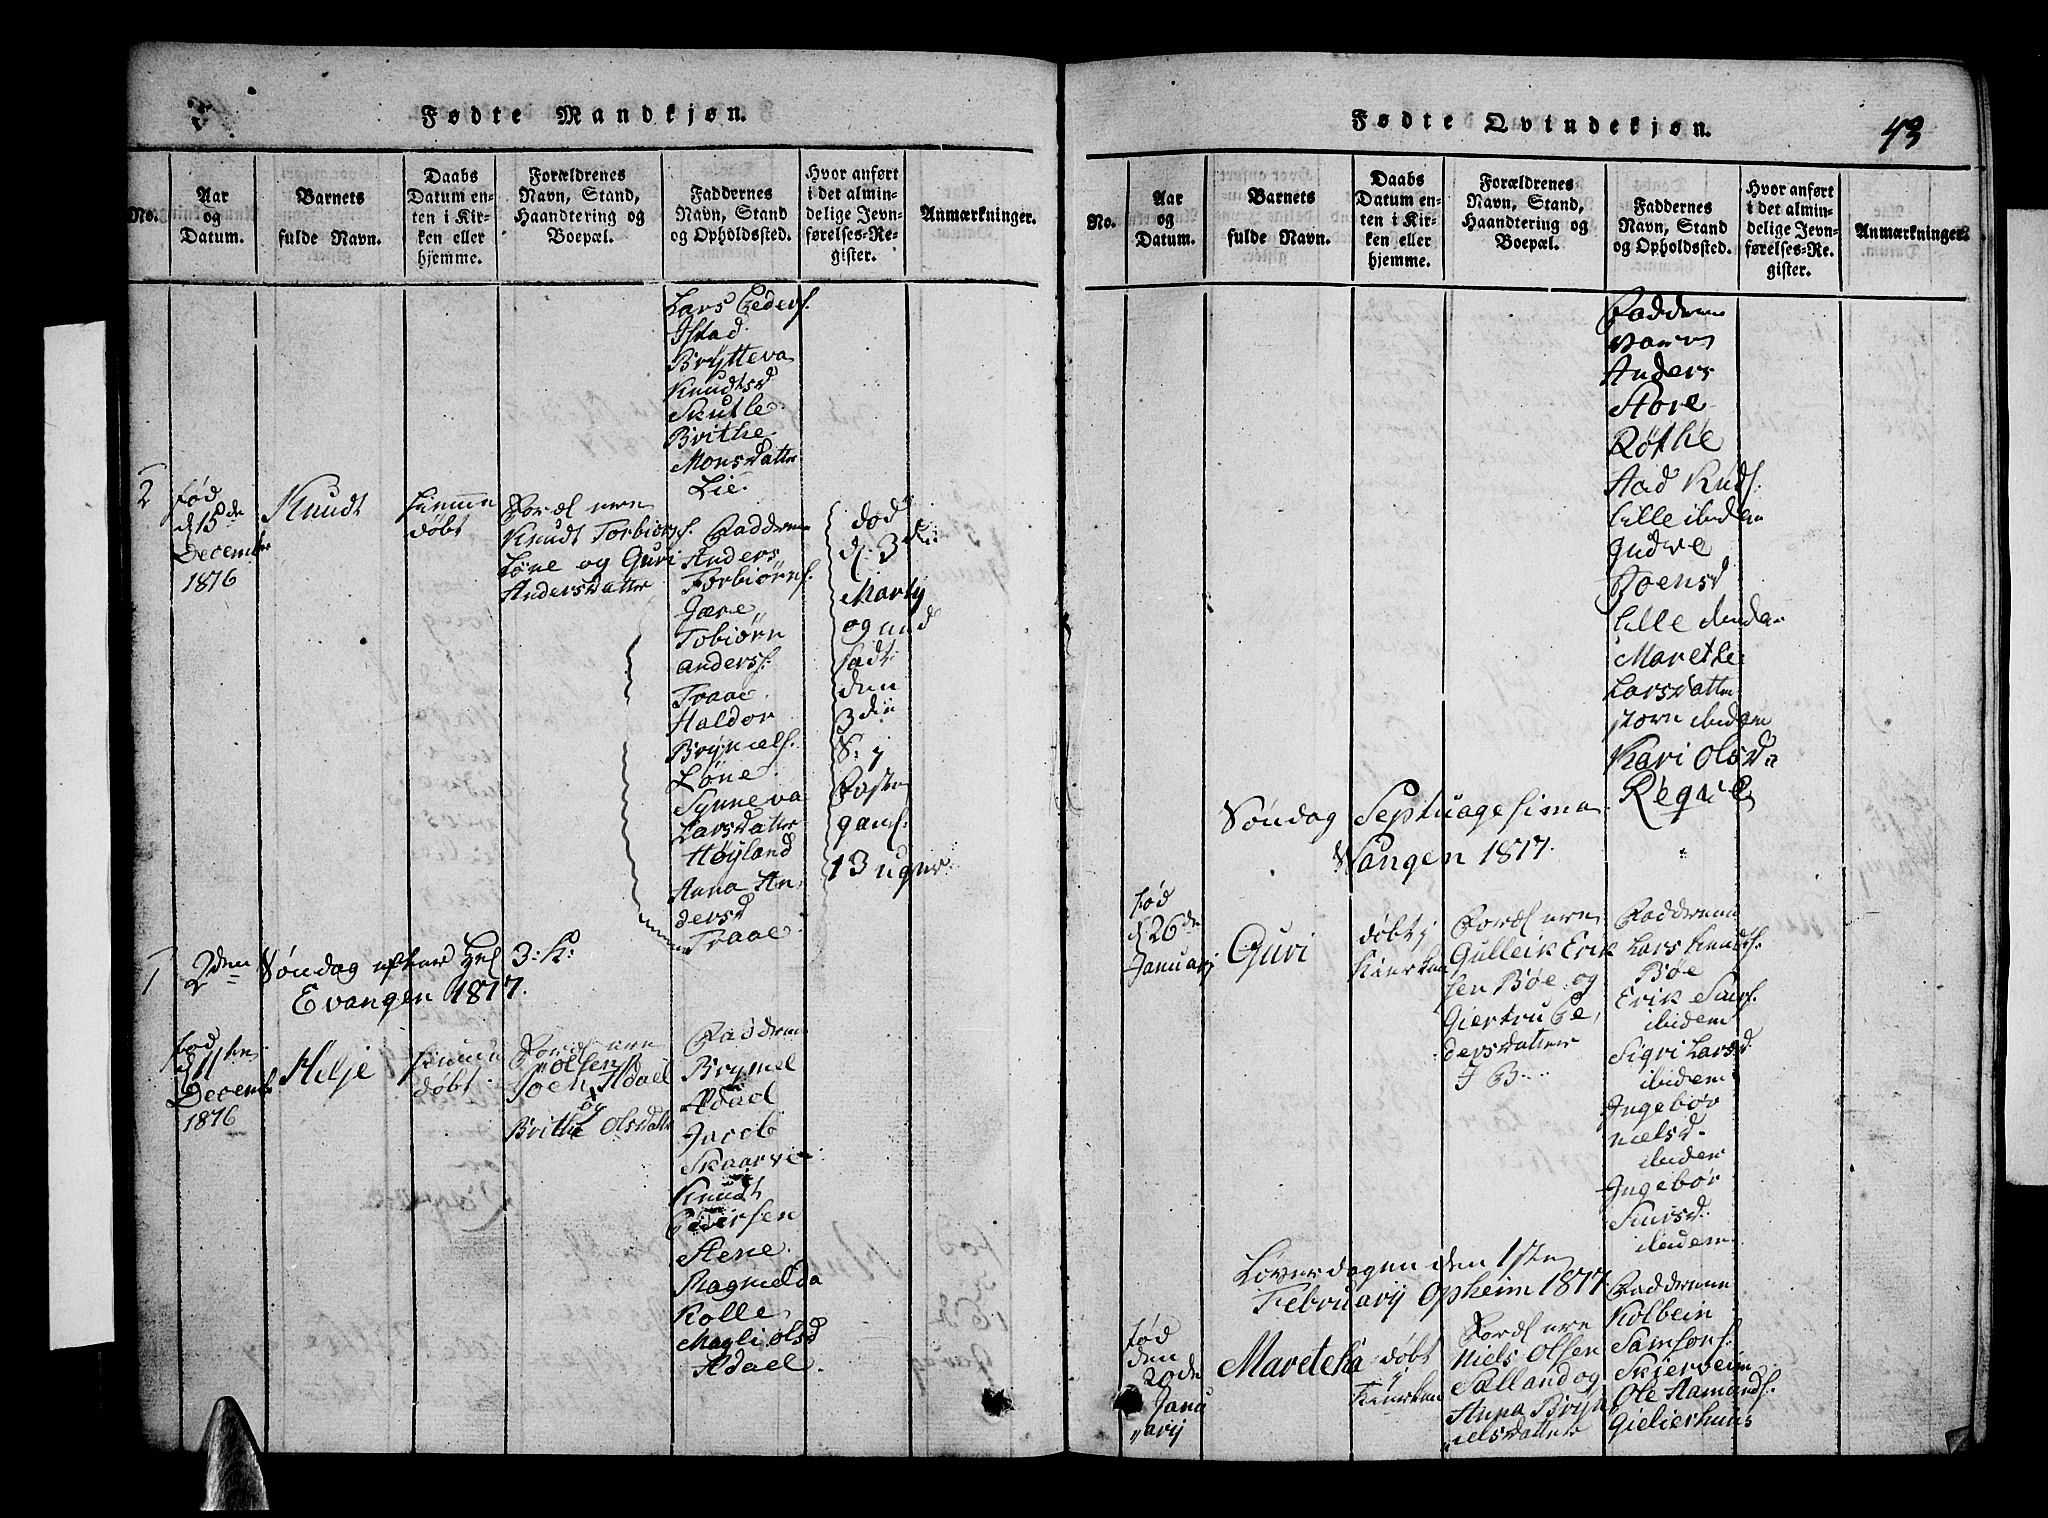 Fødte Mandkjøn.
No.
Aar
og
Datum.
Barnets
fulde Navn.
Daabs
Datum en-
ten i Kir-
ken eller
hjemme.
Forældrenes
Navn, Stand,
Haandtering og
Boepæl.
Faddernes
Navn, Stand
og Opholdssted.
Hvor anført
i det almin-
delige Jevn-
førelses-Re-
gister.
Anmærkninger.
Lars Peders.
Istad
Brytteva
Knudtsd
Skutle
Brithe
Monsdatter
Lie.
2
fød
d 15de
December
1816
Knudt
hiemme
døbt
Forældrerne
Knudt Torbiors.
Løne og Guri
Andersdatter
Fadderne
Anders
Torbiørns.
Jære
Tobiørn
anders.
Traae
Haldor
Bryniels.
Løne
Synneva
Larsdatter
Høyland
Anna An-
dersd
Traae
død
d. 3die
Martij
og
den
3die
S. i
Faste
gaml.
13 uger
1
2den Søndag efter Hel 3: K:
Evangen 1817.
fød
d 11te
Decemb
1816
Helje
hiemme
døbt
Forældrerne
Joen Olsen Adael
og
Brithe Olsdatter
Fadderne
Brynel
Adael
Jacob
Skaarve
Knudt
Pedersen
Stene
Ragnelda
Kolle
Magli Olsd
Adael.
Fødte Qvindekjøn.
43
No.
Aar
og
Datum.
Barnets
fulde Navn.
Daabs
Datum en-
ten i Kir-
ken eller
hjemme.
Forældrenes
Navn, Stand,
Haandtering og
Boepæl.
Faddernes
Navn, Stand
og Opholdssted.
Hvor anført
i det almin-
delige Jevn-
førelses-Re-
gister.
Anmærkninger.
Fadderne
Anders
Store
Røthe
Aad Knuds.
Lille ibidem
Joensd
Lille ibidem
Marethe
Larsdatter
store ibidem
Kari Olsd
Reqve
Søndag Septuagesima
Wangen 1817.
fød
d 26de
Januarij
Guri
døbt i
Kierken
Forældrerne
Gulleik Erik
sen Bøe og
Giertru Pe
dersdatter
I B.
Fadderne
Lars Knudts.
Bøe
Erik
ibidem
Sigri Larsd
ibidem
Ingebør
nielsd.
ibidem
Ingebør
ibidem
Løverdagen den 1ste
Februarij Opheim 1817
fød
den
20de
Janu
arij
Maretha
døbt
i
Kierken
Forældrerne
Niels Olsen
Salland og
Anna Bryn
ielsdatter
Fadderne
Kolbein
Samsons.
Skierveim
Ole Aamonds.
Gielierhuus